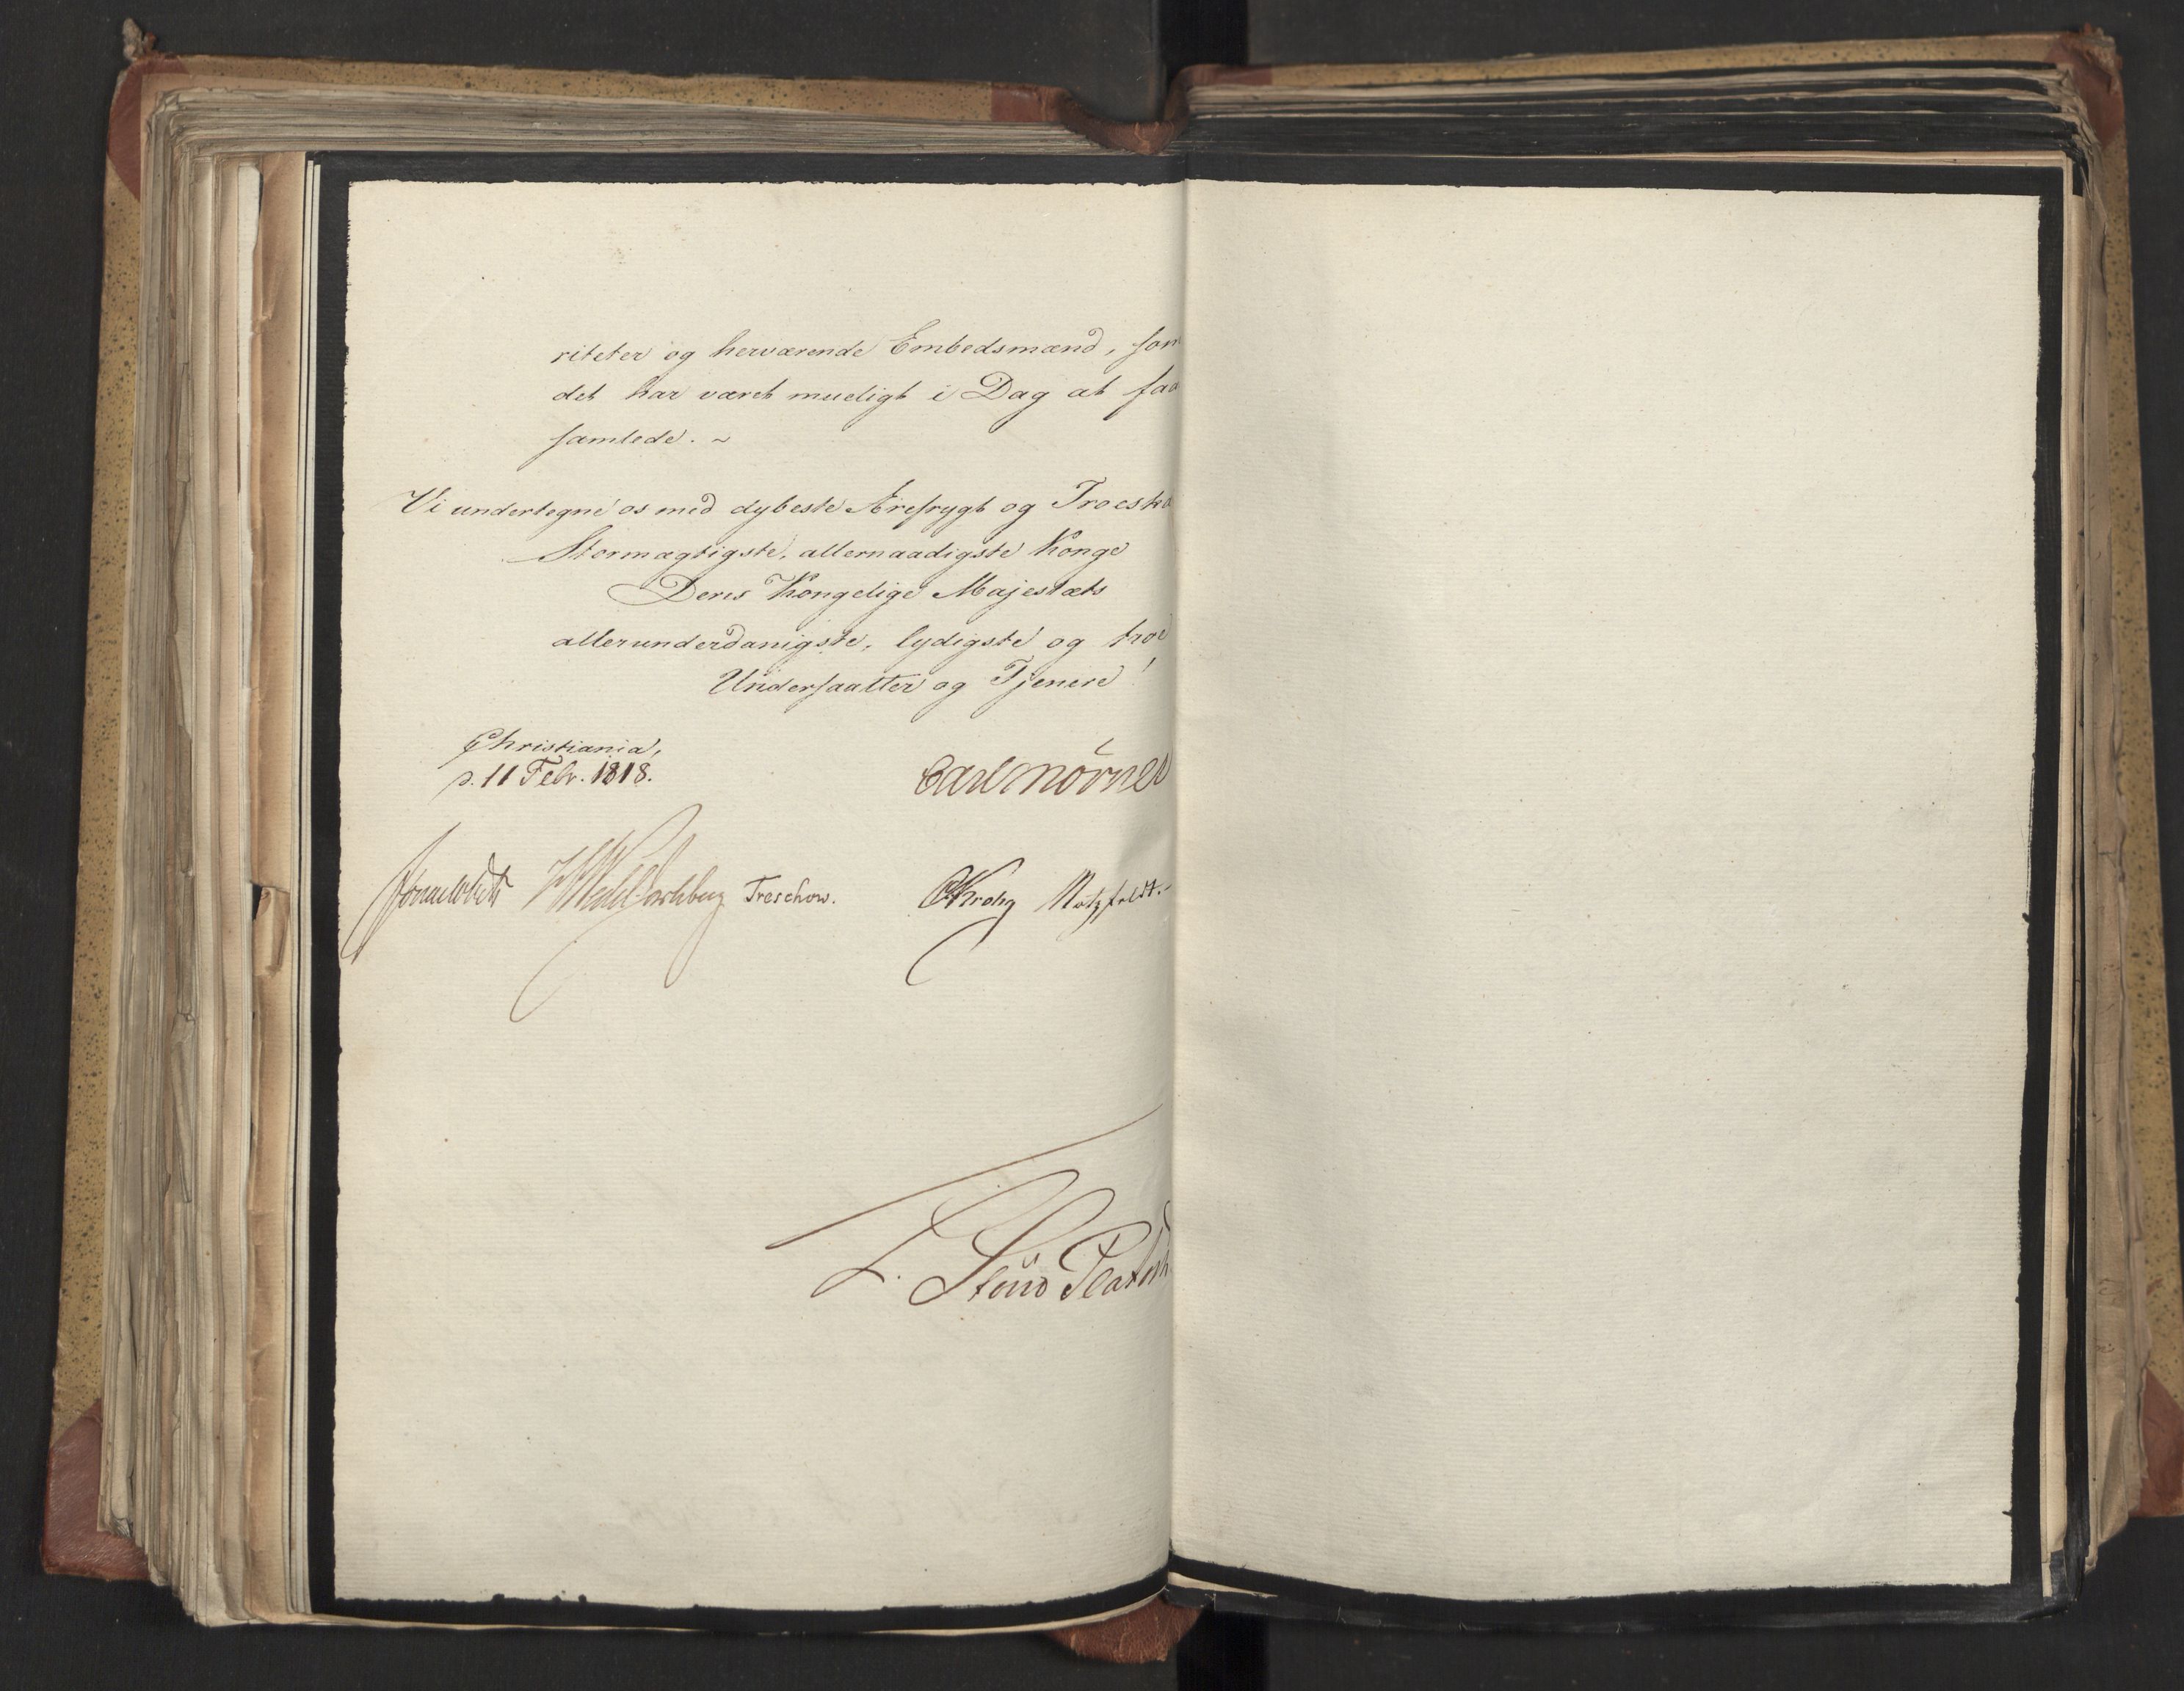 riteter og herværende Embedsmænd, som
det har været mueligt i Dag at faa
samlede. ~
Vi undertegne os med dybeste Ærefrygt og Troeska
Stormægtigste, allernaadigste Konge
Deres Kongelige Majestæts
allerunderdanigste, lydigste og troe
Undersaatter og Tjenere!
Christiania,
d. 11 Febr. 1818.
Carl Mörner
Sommerhielm WedelJarlsberg Treschow. CKrohg Motzfeldt.
L. Stoud Platou